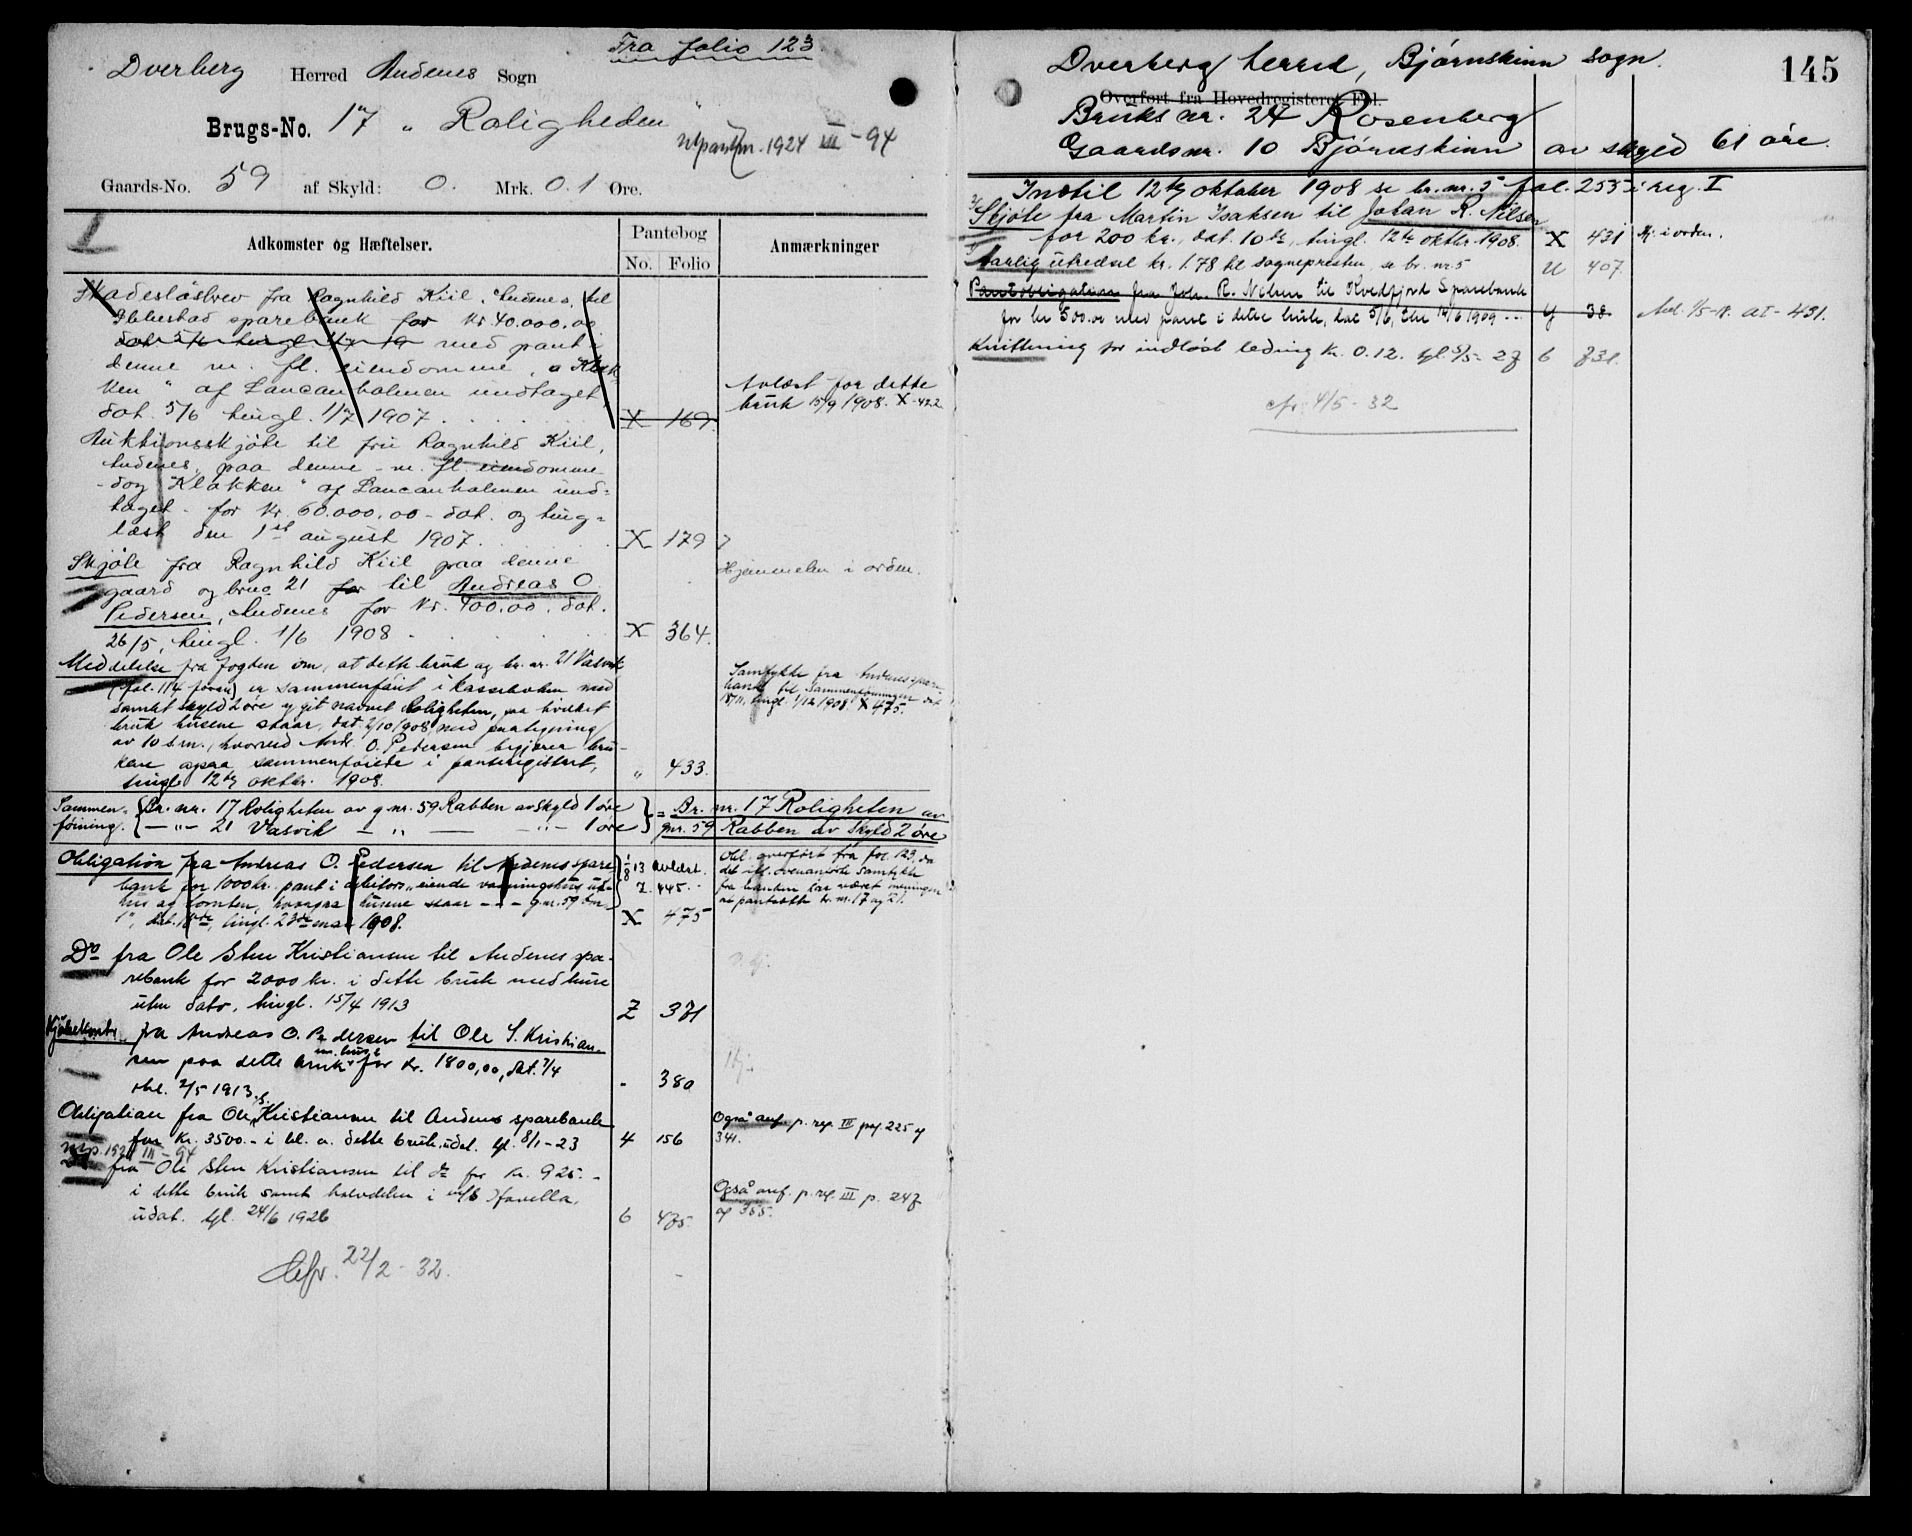 Fra folio 123.
Dverberg Herred Andenes Sogn
Brugs-No. 17 „Roligheden"
Utpantn. 1924 III - 94
Gaards-No. 59 af Skyld: 0. Mrk. 0.1 Øre.
I
Adkomster og Hæftelser.
Pantebog
No. Folio
Anmærkninger
Skadesløsbrev fra Ragnhild Kiil, Andenes, til
Ibbestad sparebank for kr. 40.000.00
med pant i
denne m. fl. eiendomme, „Klak-
ken" af Lancanholmen undtaget,
dat. 5/6 tingl. 1/7 1907. X 169.
Avlæst for dette
bruk 15/9 1908. X-422
Auktionsskjøte til fru Ragnhild Kiil,
Andenes, paa denne m. fl. eiendomme
- dog „Klakken" af Lancanholmen und-
taget - for kr. 60.000.00 - dat. og ting-
læst den 1st august 1907. X 179
Skjøte fra Ragnhild Kiil paa denne
gaard og brug 21 for til Andreas O.
Pedersen, Andenes for kr. 400.00. dat.
26/5, tingl. 1/6 1908. X 364.
Hjemmelen i orden.
Meddelelse fra fogden om, at dette bruk og br. nr. 21 Vasvik
(fol. 114 foran) er sammenføiet i kasseboken med
samlet skyld 2 øre og git navnet Roligheten, paa hvilket
bruk husene staar, dat. 2/10 1908, med paategning
av 10 s.m., hvorved Andr. O. Pedersen begjærer bru-
kene ogsaa sammenføiede i pantregistret,
tingl. 12te oktbr. 1908. „ 433.
Samtykke fra Andenes spare-
bank til sammenføiningen dat.
18/11, tingl. 1/12 1908 X 475.
Sammen- { Br. nr. 17 Roligheten av gnr. 59 Rabben av skyld 1 øre } = Br. nr. 17 Roligheten av
føining. { — „ — 21 Vasvik — „ — — „ — 1 øre } gnr. 59 Rabben av skyld 2 øre
Obligation fra Andreas O. Pedersen til Andenes spare-
bank for 1000 kr. pant i debitors eiende vaaningshus, ut-
hus og tomten, hvorpaa husene staar - - - gnr. 59 bnr.
1", dat. 18de, tingl. 23de mai 1908. X 475
Avlæst.
Z. 445.
Obl. overført fra fol. 123, da
det iflg. ovenanførte samtykke
fra banken har været meningen
at pantsætte br. nr. 17 og 21.
Do fra Ole Sten Kristiansen til Andenes spa-
rebank for 2000 kr. i dette bruk med huse
uten dato, tingl. 15/4 1913 Z 371
Kjøpekontr. fra Andreas O. Pedersen til Ole S. Kristian-
sen paa dette bruk m. huse for kr. 1800,00, dat. 7/4
tbl. 2/5 1913. - 380
Hj.
Obligation fra Ole S. Kristiansen til Andenes sparebank
for kr. 3500.- i bl. a. dette bruk. udat. tgl. 8/1-23 4 156
Også anf. p. reg. III pag. 225 og
341.
III - 94
Do fra Ole Sten Kristiansen til do for kr. 925.-
i dette bruk samt halvdelen i m/b
udat. tgl. 24/6 1926 6 475.
Også anf. p. reg. III p. 247
og 355.
Cfr. 22/2-32.
145
Dverberg herred, Bjørnskinn sogn.
Overført fra Hovedregisteret Fol.
Bruks nr. 24 Rosenberg
Gaardsnr. 10 Bjørnskinn av skyld 61 øre.
Indtil 12te oktober 1908 se br. nr. 5 fol. 255 i reg. I
Skjøte fra Martin Isaksen til Johan R. Nilsen
for 200 kr., dat. 10de, tingl. 12te oktbr. 1908. X 431 Hj. i orden.
Aarlig utredsel kr. 1.78 til sognepresten, se br. nr. 5 U 407.
Pantobligation fra Joh. R. Nilsen til Kvedfjord Sparebank
for kr 500.00 med pant i dette bruk, dat 5/6, tbl 14/6 1909 - - - Y 38. Avl. 1/5-18. at - 431.
Kvittering for indløst leding kr. 0.12. tgl. 5/5-27 6 731.
cfr. 4/5-32